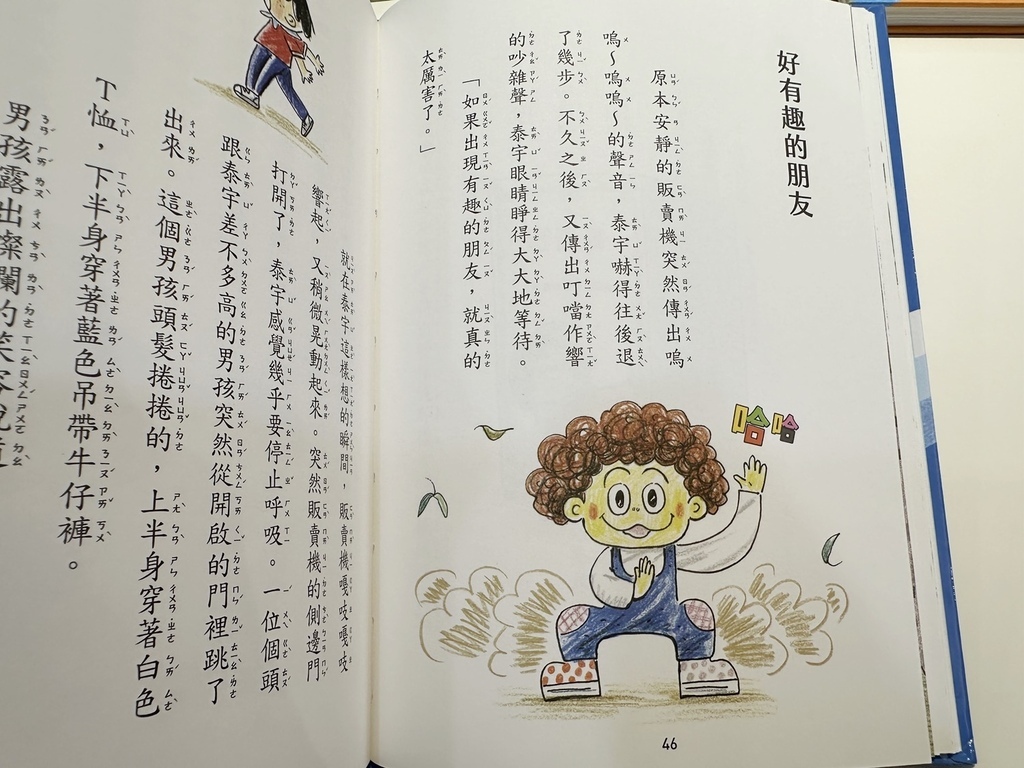 好有趣的朋友
原本安靜的販賣機突然傳出嗚
嗚～嗚嗚～的聲音，泰宇嚇得往後退
了幾步。不久之後，又傳出叮噹作響
的吵雜聲，泰宇眼睛睜得大大地等待。
「如果出現有趣的朋友，就真的
太厲害了。」
哈哈
46
就在泰宇這樣想的瞬間，販賣機嘎吱嘎吱
響起，又稍微晃動起來。突然販賣機的側邊門
打開了，泰宇感覺幾乎要停止呼吸。一位個頭
跟泰宇差不多高的男孩突然從開啟的門裡跳了
出來。這個男孩頭髮捲捲的，上半身穿著白色
T恤，下半身穿著藍色吊帶牛仔褲。
男孩露出燦爛的笑容說道